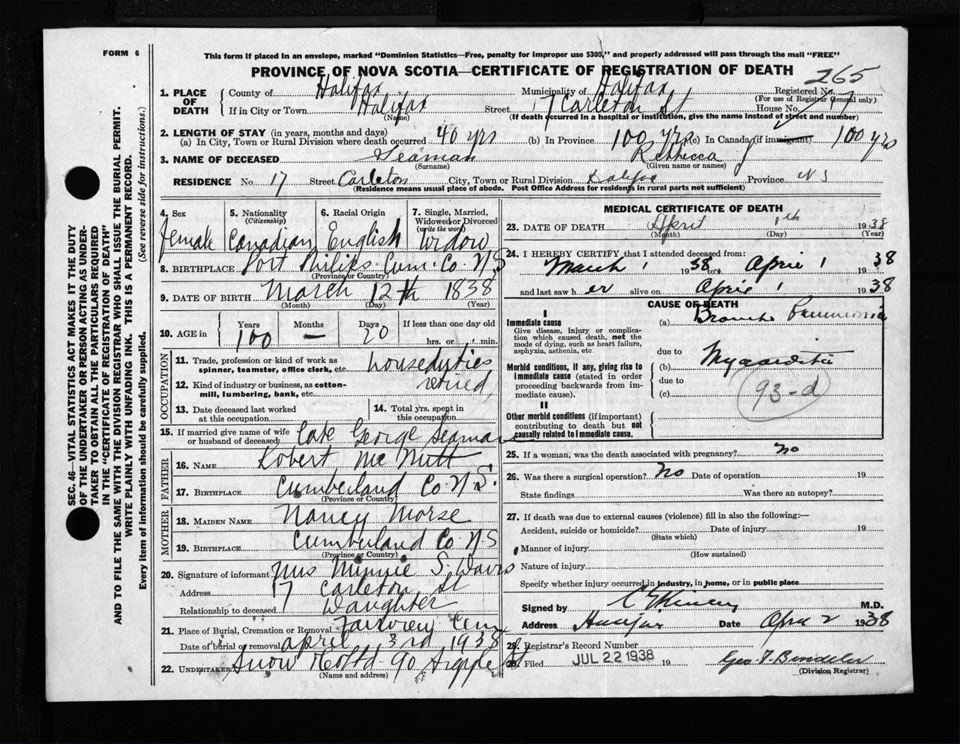 FORM 6
This form if placed in an envelope, marked "Dominion Statistics—Free, penalty for improper use $300," and properly addressed will pass through the mail "FREE"
PROVINCE OF NOVA SCOTIA—CERTIFICATE OF REGISTRATION OF DEATH
265
1. PLACE OF DEATH
County of Halifax Municipality of Halifax Registered No.
(For use of Registrar General only)
If in City or Town Halifax Street 17 Carleton St House No. 17
(Name) (If death occurred in a hospital or institution, give the name instead of street and number)
2. LENGTH OF STAY (in years, months and days)
(a) In City, Town or Rural Division where death occurred 40 yrs (b) In Province 100 yrs (c) In Canada (if immigrant) 100 yrs
3. NAME OF DECEASED Seaman Rebecca
(Surname) (Given name or names)
RESIDENCE No. 17 Street Carleton City, Town or Rural Division Halifax Province N S
(Residence means usual place of abode. Post Office Address for residents in rural parts not sufficient)
4. Sex
female
5. Nationality (Citizenship)
Canadian
6. Racial Origin
English
7. Single, Married, Widowed or Divorced (write the word)
Widow
8. BIRTHPLACE Port Philips Cum. Co. N S
(Province or Country)
9. DATE OF BIRTH March 12th 1838
(Month) (Day) (Year)
10. AGE in Years Months Days If less than one day
100 — 20 hrs. or min.
OCCUPATION
11. Trade, profession or kind of work as spinner, teamster, office clerk, etc. house duties
12. Kind of industry or business, as cotton-mill, lumbering, bank, etc. retired
13. Date deceased last worked at this occupation
14. Total yrs. spent in this occupation
15. If married give name of wife or husband of deceased Late George Seaman
FATHER
16. NAME Robert McNutt
17. BIRTHPLACE Cumberland Co N S.
(Province or Country)
MOTHER
18. MAIDEN NAME Nancy Morse
19. BIRTHPLACE Cumberland Co N S
(Province or Country)
20. Signature of informant Mrs Minnie S. Davis
Address 17 Carleton St
Relationship to deceased Daughter
21. Place of Burial, Cremation or Removal Fairview Cem
Date of burial or removal April 3rd 1938
22. UNDERTAKER Snow & Co Ltd 90 Argyle St
(Name and address)
MEDICAL CERTIFICATE OF DEATH
23. DATE OF DEATH April 1th 1938
(Month) (Day) (Year)
24. I HEREBY CERTIFY, that I attended deceased from:
March 1 1938 to April 1 1938
and last saw her alive on April 1 1938
CAUSE OF DEATH
I
Immediate cause (a) Broncho Pneumonia
Give disease, injury or complication which caused death, not the mode of dying, such as heart failure, asphyxia, asthenia, etc
due to
Morbid conditions, if any, giving rise to immediate cause (stated in order proceeding backwards from immediate cause).
(b) Myocarditis
due to
(c)
93-d
II
Other morbid conditions (if important) contributing to death but not causally related to immediate cause.
25. If a woman, was the death associated with pregnancy? no
26. Was there a surgical operation? No Date of operation 19
State findings Was there an autopsy?
27. If death was due to external causes (violence) fill in also the following:—
Accident, suicide or homicide? Date of injury 19
(State which)
Manner of injury
(How sustained)
Nature of injury
Specify whether injury occurred in industry, in home, or in public place
Signed by M.D.
Address Halifax Date April 2 1938
28. Registrar's Record Number
29. Filed JUL 22 1938 19
(Division Registrar)
SEC. 46—VITAL STATISTICS ACT MAKES IT THE DUTY OF THE UNDERTAKER OR PERSON ACTING AS UNDERTAKER TO OBTAIN ALL THE PARTICULARS REQUIRED IN THE "CERTIFICATE OF REGISTRATION OF DEATH" AND TO FILE THE SAME WITH THE DIVISION REGISTRAR WHO SHALL ISSUE THE BURIAL PERMIT.
WRITE PLAINLY WITH UNFADING INK. THIS IS A PERMANENT RECORD.
Every item of information should be carefully supplied. (See reverse side for instructions.)